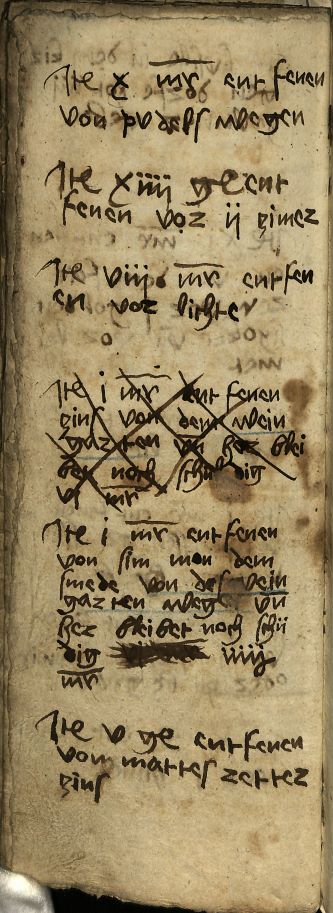 Ite x mr entfenen
von pvdels wegen
Ite xiiij ge ent
fenen voz ij zimez
Ite viij mr entfen
en voz lichte
Ite i mr entfenen
zins von dem wein
gazten vn hez blei
bet noch schuldig
vi mr
Ite i mr entfenen
von sim mon dem
smede von des vein
gazten wege vn
hez bleibet noch schu
dig iiiij
mr
Ite v ge entfenen
vom mattes zettez
zins